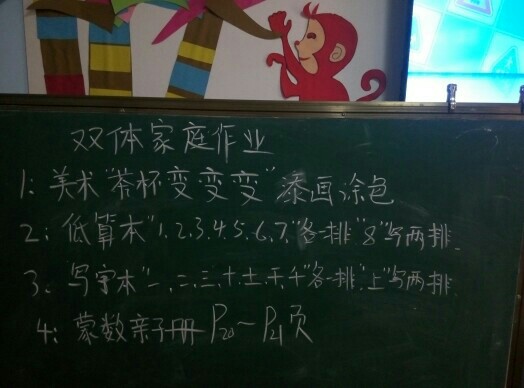 双休家庭作业
1: 美术“茶杯变变变”添画涂色
2: 低算本“1、2、3、4、5、6、7、”各一排“8”写两排
3、写字本“一、二、三、十、土、干、千”各一排“上”写两排
4: 蒙数亲子册P20~P21页